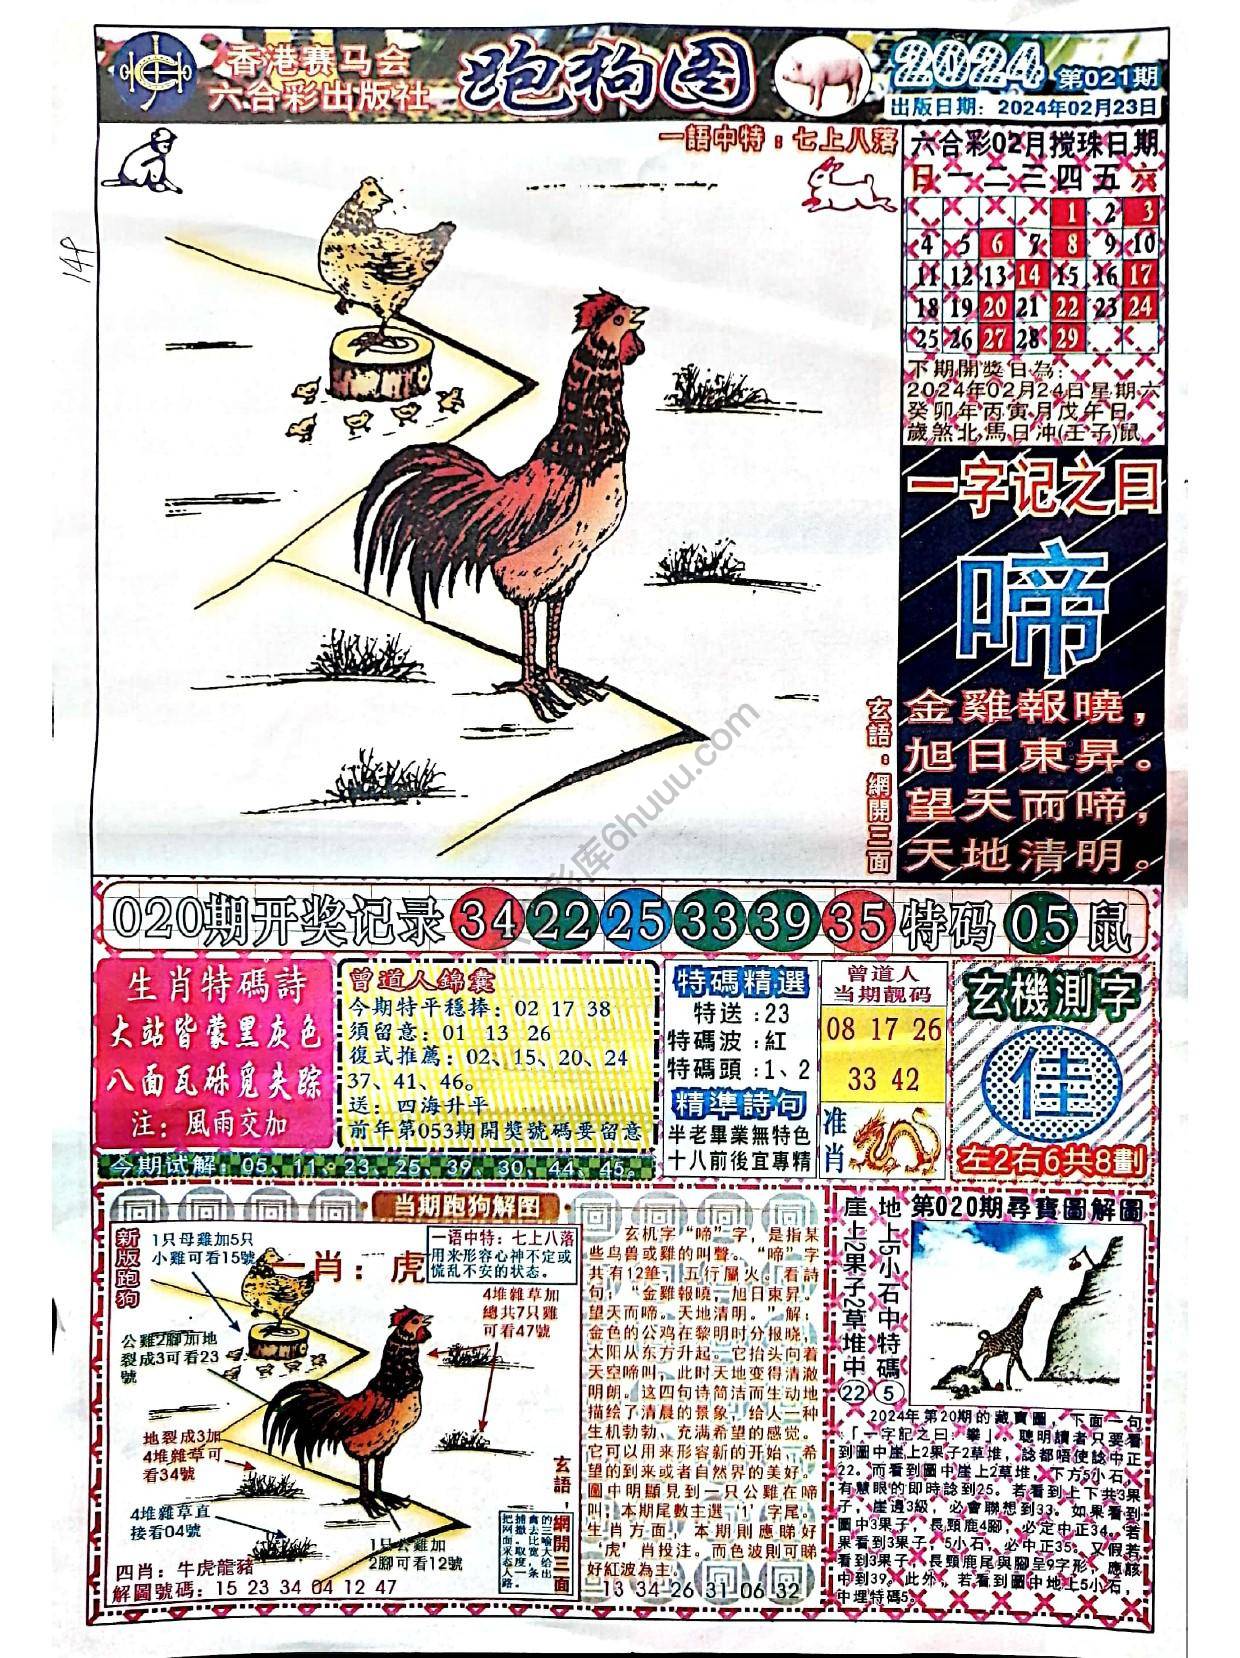 香港赛马会
六合彩出版社
跑狗图
2024 第021期
出版日期：2024年02月23日
一語中特：七上八落
14P
六合彩02月搅珠日期
日 一 二 三 四 五 六
1 2 3
4 5 6 7 8 9 10
11 12 13 14 15 16 17
18 19 20 21 22 23 24
25 26 27 28 29
下期開獎日為：
2024年02月24日星期六
癸卯年丙寅月戊午日
歲煞北,馬日冲(壬子)鼠
一字记之曰
啼
金雞報曉，
旭日東昇。
望天而啼，
天地清明。
玄語：網開三面
彩库6huuu.com
020期开奖记录 34 22 25 33 39 35 特码 05 鼠
生肖特碼詩
大站皆蒙黑灰色
八面瓦砾覓失踪
注：風雨交加
曾道人錦囊
今期特平穩捧：02 17 38
須留意：01 13 26
復式推薦：02、15、20、24
37、41、46。
送：四海升平
前年第053期開獎號碼要留意
今期试解：05、11、23、25、39、30、44、45。
特碼精選
特送：23
特碼波：紅
特碼頭：1、2
精準詩句
半老畢業無特色
十八前後宜專精
曾道人
当期靓码
08 17 26
33 42
准肖
玄機測字
佳
左2右6共8劃
当期跑狗解图
新版跑狗
1只母雞加5只
小雞可看15號
一肖：虎
一语中特：七上八落
用来形容心神不定或
慌乱不安的状态。
4堆雜草加
總共7只雞
可看47號
公雞2腳加地
裂成3可看23
號
地裂成3加
4堆雜草可
看34號
4堆雜草直
接看04號
1只公雞加
2腳可看12號
玄語，網開三面
四肖：牛虎龍豬
解圖號碼：15 23 34 04 12 47
玄机字“啼”字，是指某
些鸟兽或雞的叫聲。“啼”字
共有12筆，五行屬火。看詩
句：“金雞報曉，旭日東昇。
望天而啼，天地清明。”解，
金色的公鸡在黎明时分报晓，
太阳从东方升起。它抬头向着
天空啼叫，此时天地变得清澈
明朗。这四句诗简洁而生动地
描绘了清晨的景象，给人一种
生机勃勃、充满希望的感觉。
它可以用来形容新的开始、希
望的到来或者自然界的美好。
圖中明顯見到一只公雞在啼
叫，本期尾數主選“1”字尾。
生肖方面，本期則應睇好
“虎”肖投注。而色波則可睇
好紅波為主。
13 34 26 31 06 32
崖上2果子2草堆中22
地上5小石中特碼5
第020期尋寶圖解圖
2024年第20期的藏寶圖，下面一句
：「一字記之曰：攀」。聰明讀者只要看
到圖中崖上2果子2草堆，諗都唔使諗中正
22。而看到圖中崖上2草堆，下方5小石，
有慧眼的即時諗到25。若看到上下共3果
子，崖邊3級，必會聯想到33。如果看到
圖中3果子，長頸鹿4腳，必定中正34。若
果看到3果子，5小石，必中正35。又假若
看到3果子，長頸鹿尾與腳呈9字形，應該
中到39。此外，若看到圖中地上5小石，
中埋特碼5。